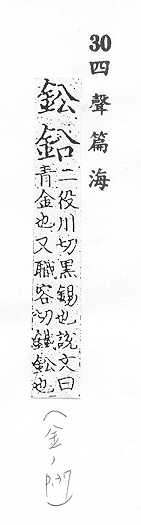 30 四聲篇海
鈆鉛
二役川切黑錫也說文曰
青金也又職容切鐵鈆也